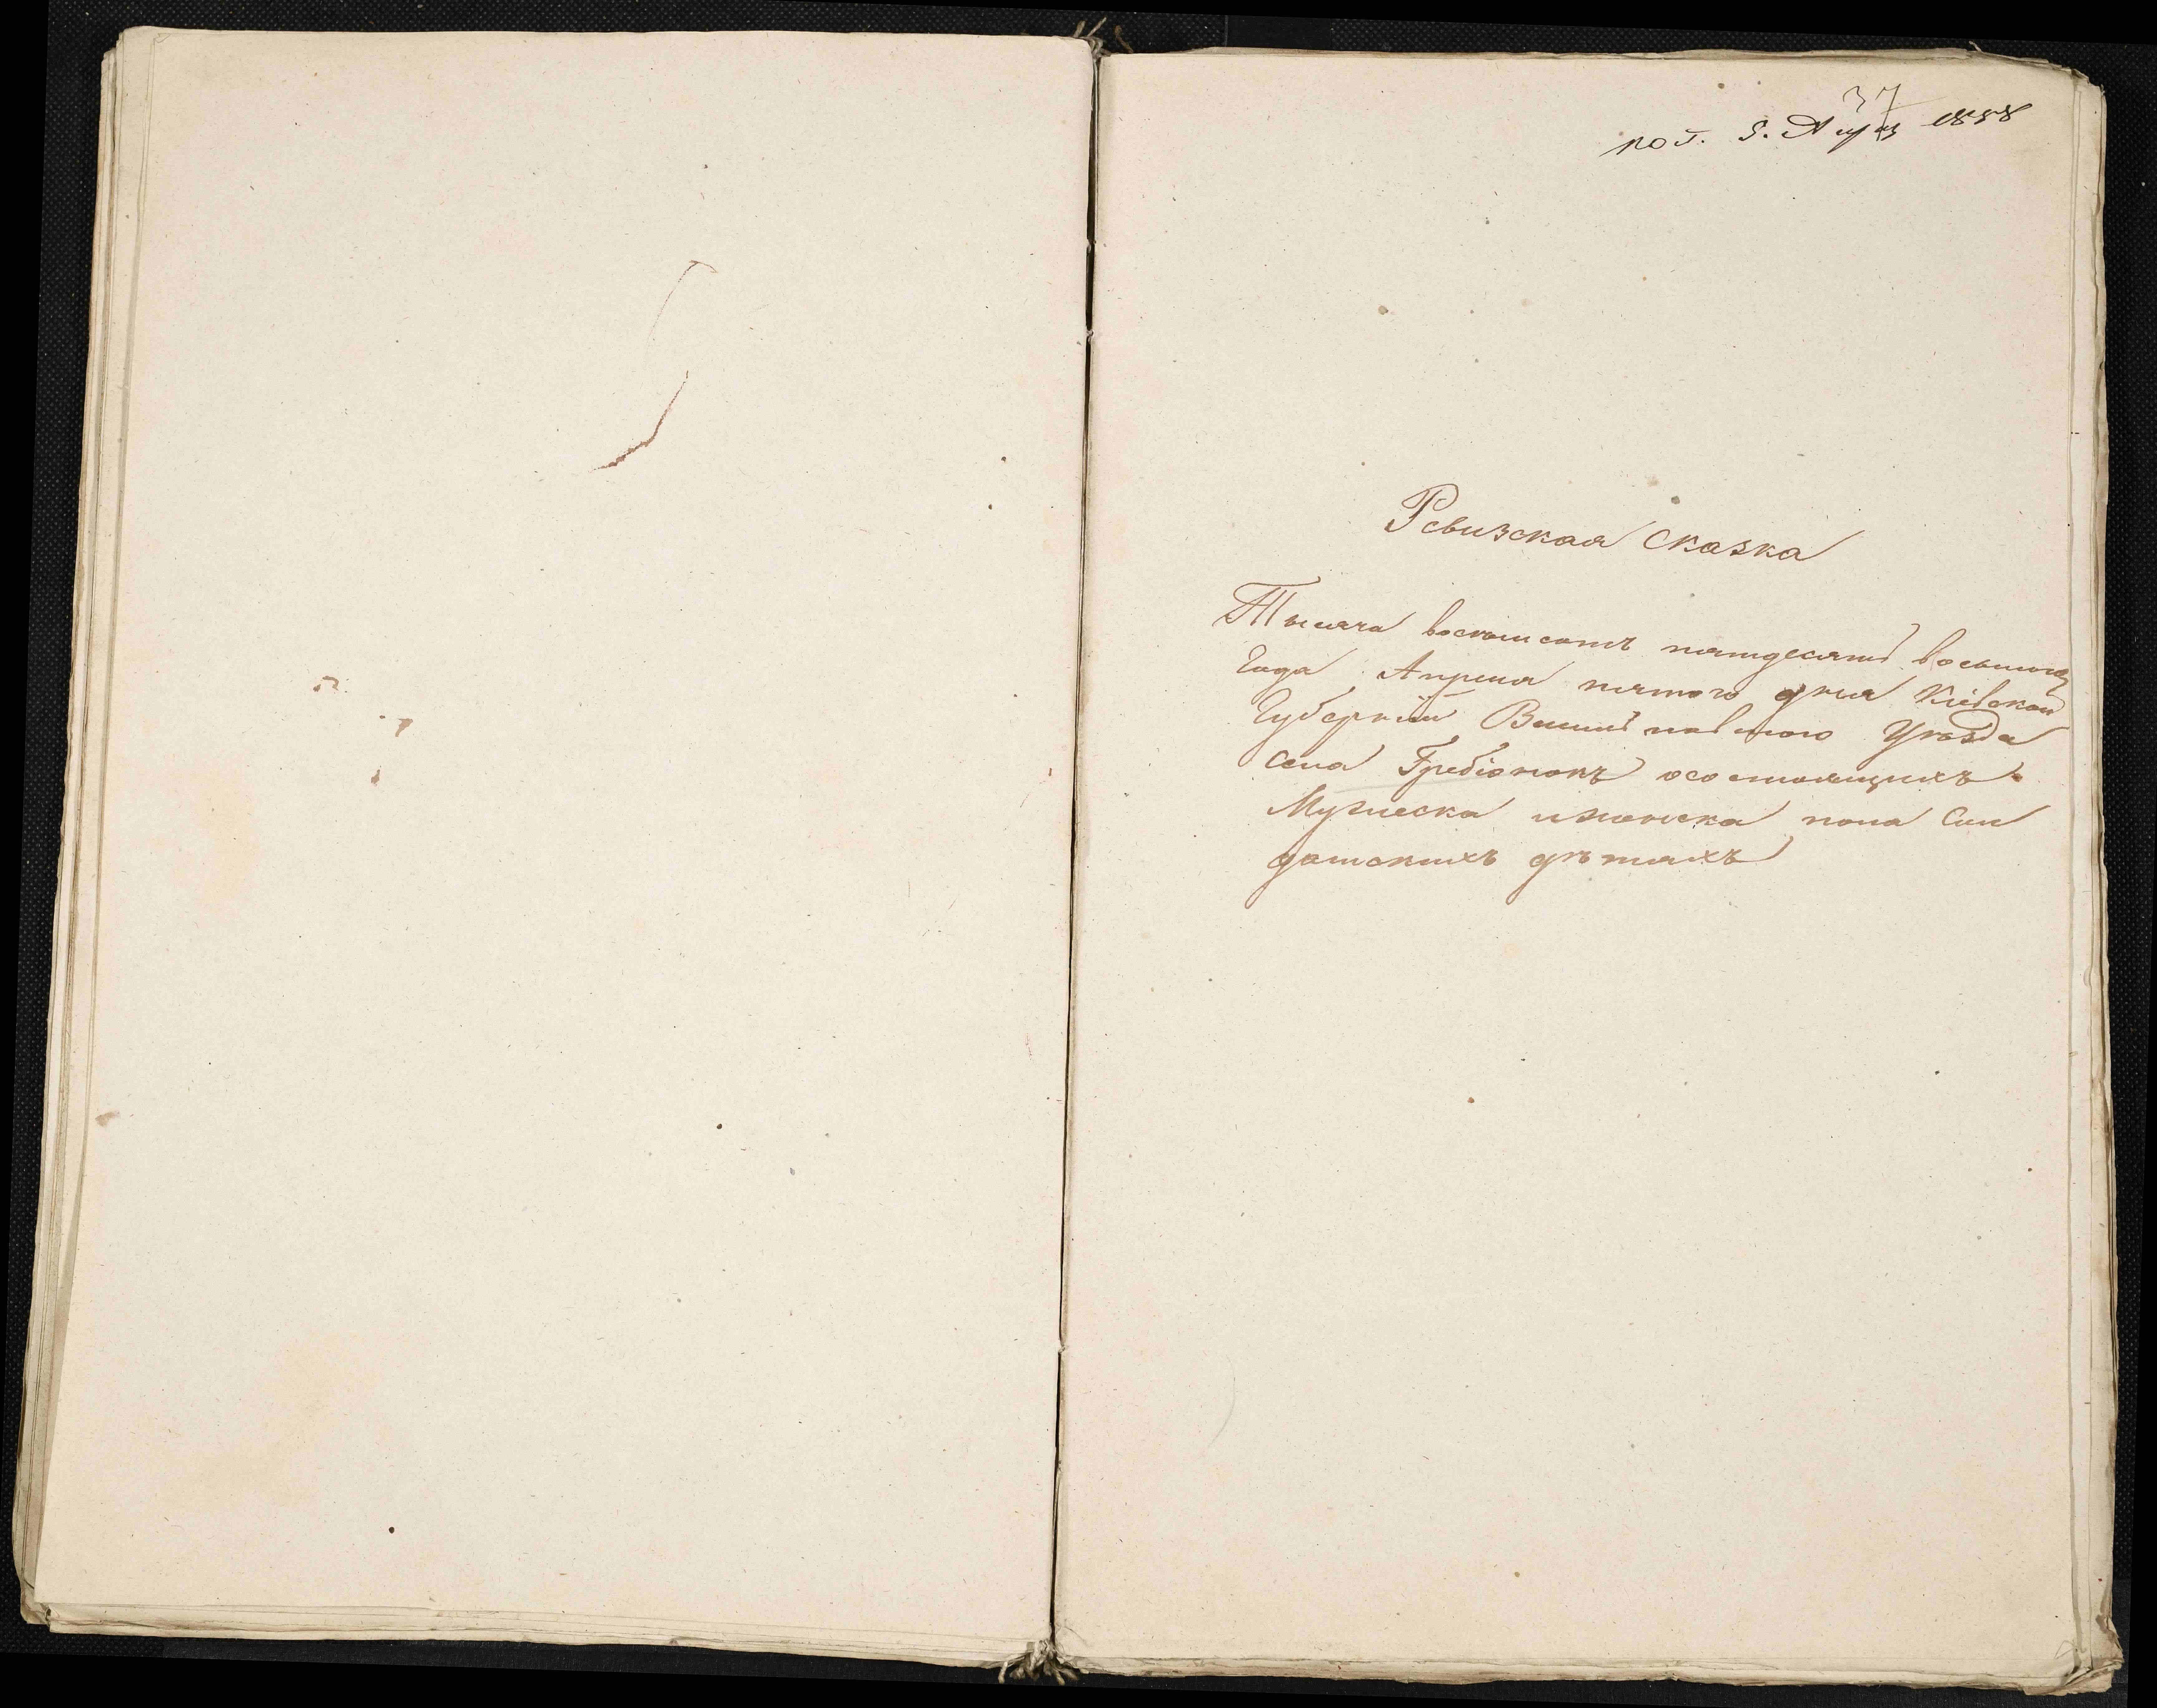 37
пол. 5. Апр 1858
Ревизская сказка
Тысяча восемьсотъ пятдесятъ восьмого
Года Апреля пятого дня Кіевской
Губерніи Василъковского Уѣзда
села Гребіонокъ осостоящихъ
Мужеска иженска пола Сол
датскихъ дѣтяхъ